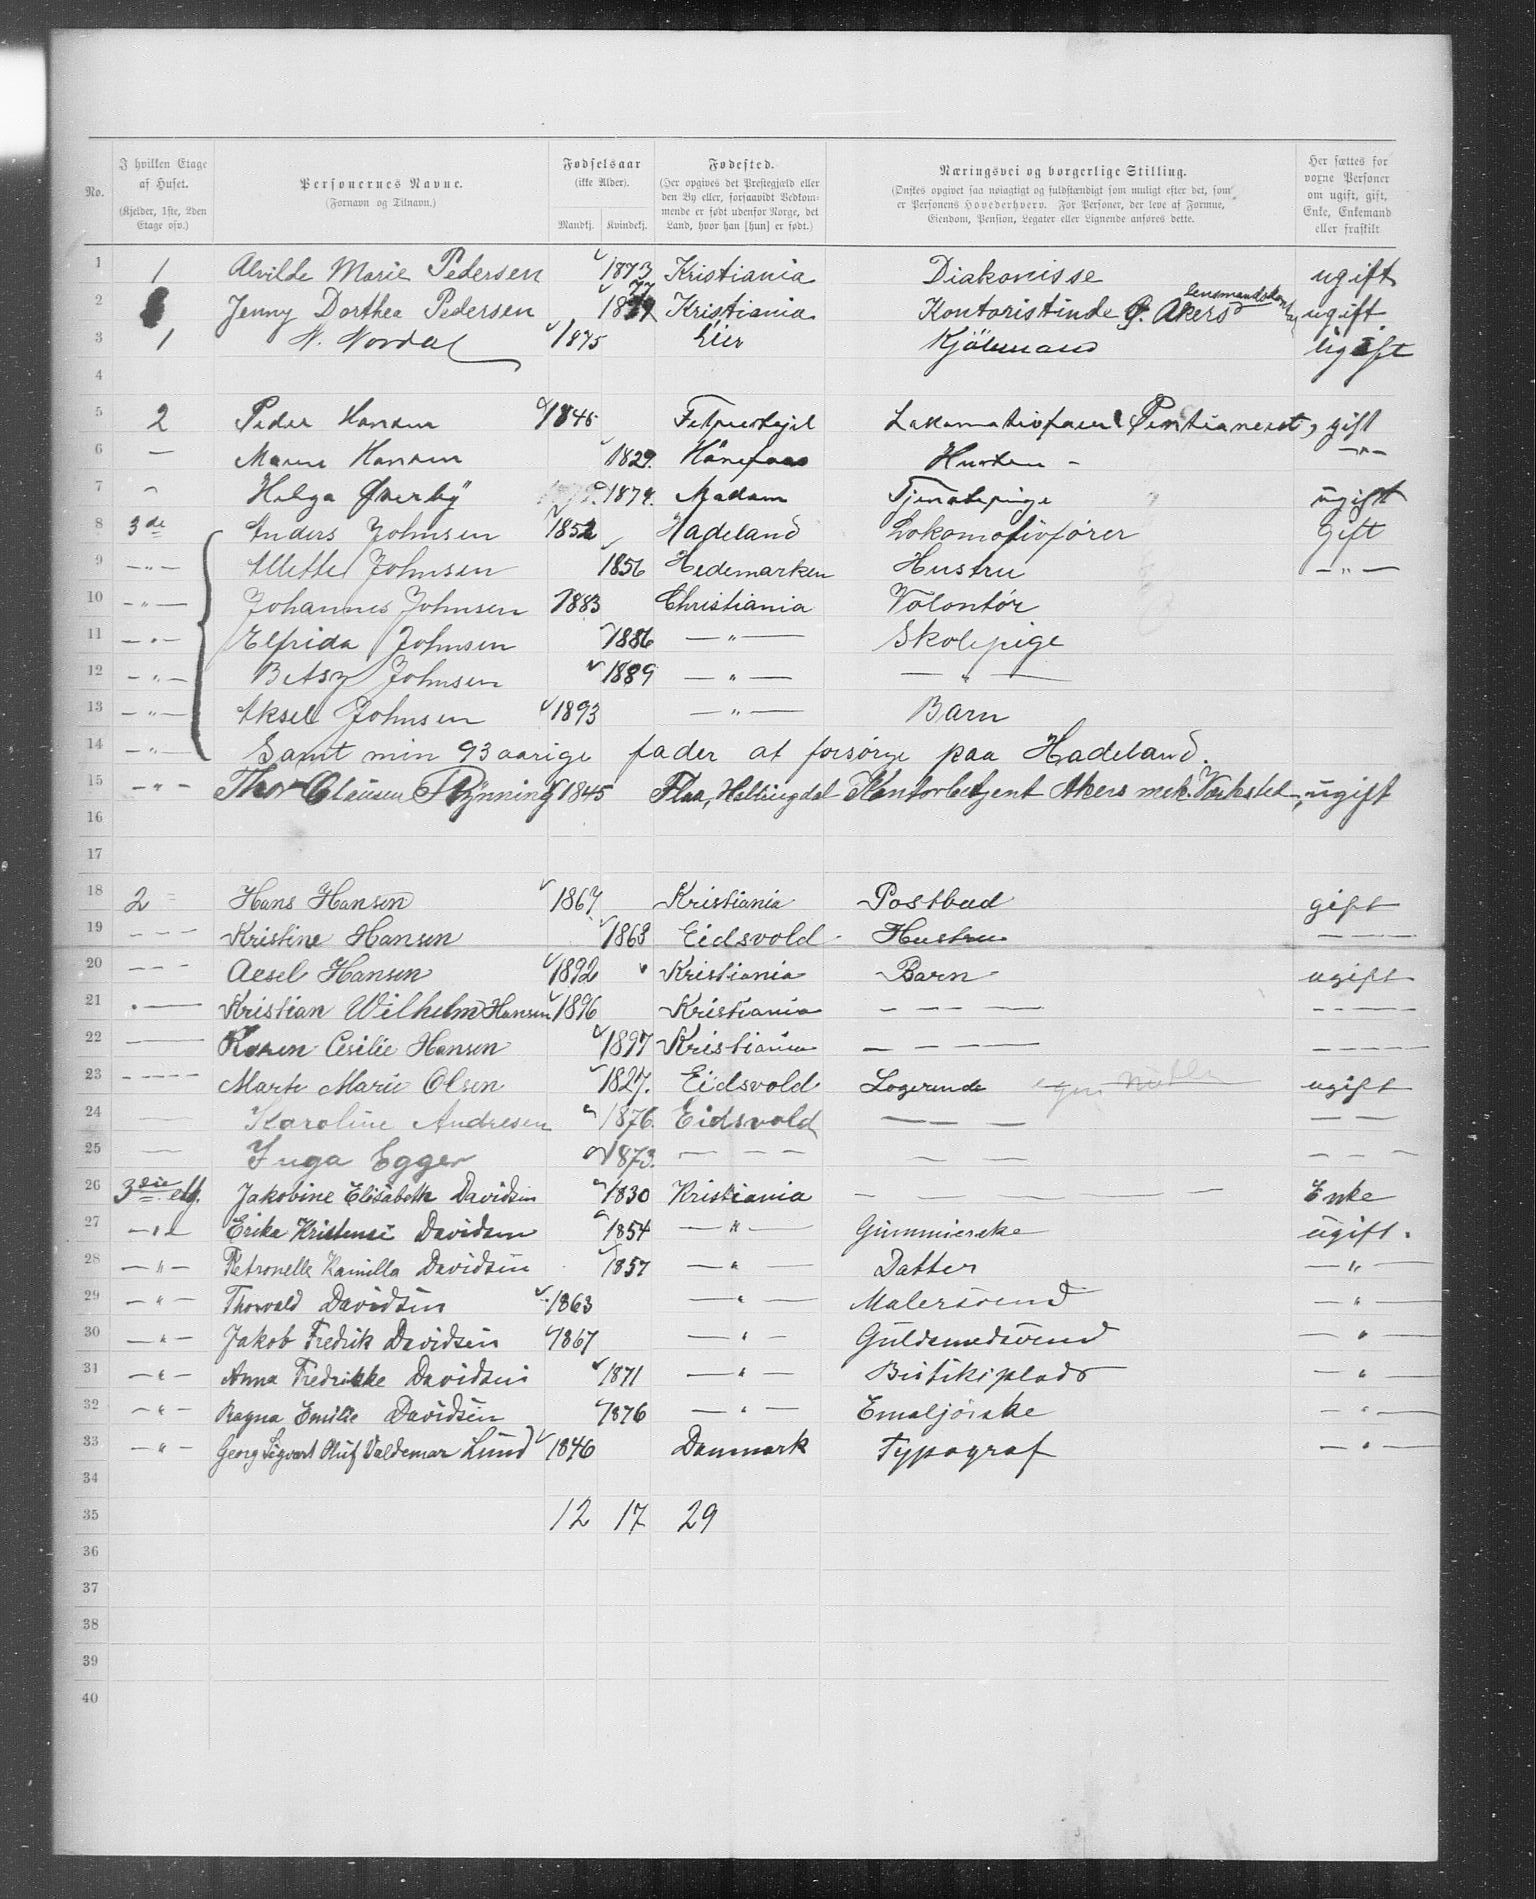 No.
I hvilken Etage af Huset. (Kjelder, 1ste, 2den Etage osv.)
Personernes Navne. (Fornavn og Tilnavn.)
Fødselsaar (ikke Alder). Mandkj. Kvindekj.
Fødested. (Her opgives det Prestegjæld eller den By eller, forsaavidt Vedkommende er født udenfor Norge, det Land, hvor han [hun] er født.)
Næringsvei og borgerlige Stilling. (Ønskes opgivet saa nøiagtigt og fuldstændigt som muligt efter det, som er Personens Hovederhverv. For Personer, der leve af Formue, Eiendom, Pension, Legater eller Lignende anføres dette.
Her sættes for voxne Personer om ugift, gift, Enke, Enkemand eller fraskilt
1 1 Alvilde Marie Pedersen 1873 Kristiania Diakonisse ugift
2 Jenny Dorthea Pedersen 1877 Kristiania Kontoristinde Akers lensmandskont ugift
3 1 N. Nordal 1875 Eier Kjøbmand ugift
4
5 2 Peder Hansen 1845 Lokomotivfører Pentioneret, gift
6 — Maren Hansen 1829. Hønefoss Hustru - — " —
7 Helga Øverby 1874. Modum Tjenestepige ugift
8 3de Anders Johnsen 1852 Hadeland Lokomotivfører Gift
9 — " — Mette Johnsen 1856 Hedemarken Hustru — " —
10 — " — Johannes Johnsen 1883 Christiania Volontør
11 — " — Elfrida Johnsen 1886 — " — Skolepige
12 — " — Betsy Johnsen 1889 — " — — " —
13 — " — Aksel Johnsen 1893 — " — Barn
14 — " — Samt min 93 aarige fader at forsørge paa Hadeland.
15 — " — Thor Clausen Rynning 1845 Flaa, Hallingdal Kontorbetjent Akers mek. Værksted, ugift
16
17
18 2 Hans Hansen 1867 Kristiania Postbud gift
19 — — — Kristine Hansen 1868 Eidsvold Hustru — — —
20 — — — Acsel Hansen 1892 Kristiania Barn ugift
21 — Kristian Wilhelm Hansen 1896 Kristiania — — — — — — —
22 — Karen Cesilie Hansen 1897 Kristiania — — — — — — —
23 — — — — Marte Marie Olsen 1827. Eidsvold Logerende ugift
24 — Karoline Andresen 1876. Eidsvold — — — — —
25 — Inga Egger 1873. — — — — — — — —
26 3die etg. Jakobine Elisabeth Davidsen 1830 Kristiania — — — Enke
27 — " — Erika Kristense Davidsen 1854 — " — ugift.
28 — " — Petronelle Kamilla Davidsen 1857 — " — Datter — " —
29 — " — Thorvald Davidsen 1863 — " — Malersvend — " —
30 — " — Jakob Fredrik Davidsen 1867 — " — Guldsmedsvend — " —
31 — " — Anna Fredrikke Davidsen 1871 — " — Butikiplads — " —
32 — " — Ragna Emilie Davidsen 1876 — " — Emaljørske — " —
33 — " — Georg Sigvart Oluf Valdemar Lund 1846 Danmark Typograf — " —
34
35 12 17 29
36
37
38
39
40